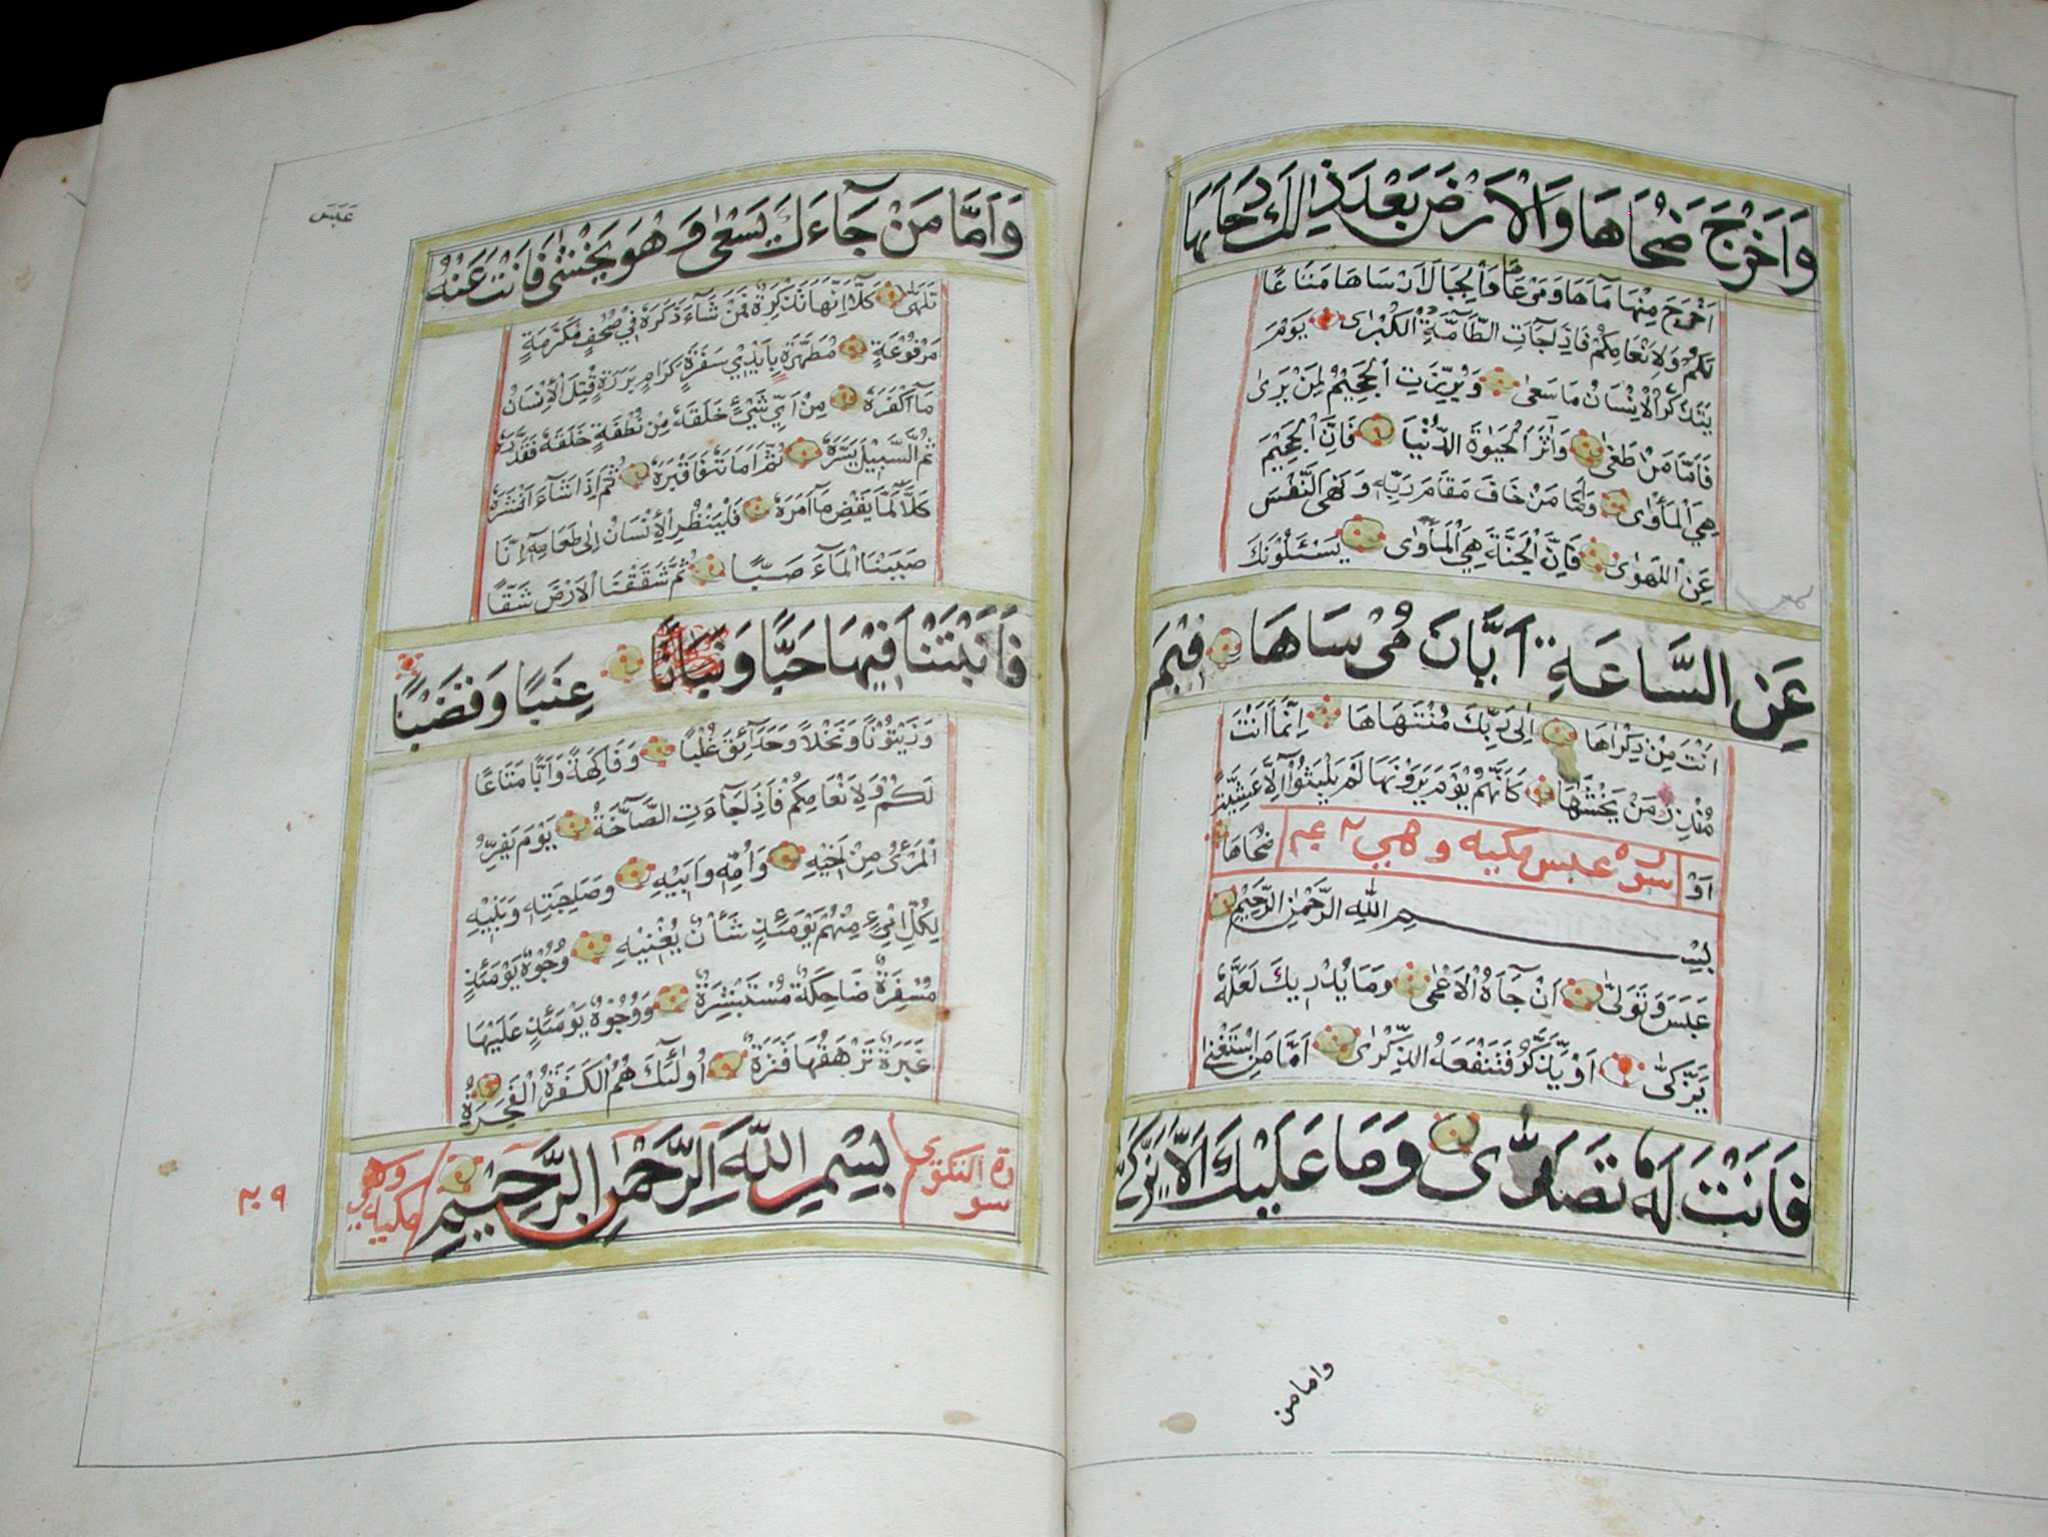 وَاَخْرَجَ ضُحَاهَا وَالْاَرْضَ بَعْدَ ذٰلِكَ دَحَاهَا
اَخْرَجَ مِنْهَا مَآءَهَا وَمَرْعَاهَا وَالْجِبَالَ اَرْسَاهَا مَتَاعًا
لَكُمْ وَلِاَنْعَامِكُمْ فَاِذَا جَآءَتِ الطَّآمَّةُ الْكُبْرٰى يَوْمَ
يَتَذَكَّرُ الْاِنْسَانُ مَا سَعٰى وَبُرِّزَتِ الْجَحِيْمُ لِمَنْ يَرٰى
فَاَمَّا مَنْ طَغٰى وَاٰثَرَ الْحَيٰوةَ الدُّنْيَا فَاِنَّ الْجَحِيْمَ
هِيَ الْمَأْوٰى وَاَمَّا مَنْ خَافَ مَقَامَ رَبِّهٖ وَنَهَى النَّفْسَ
عَنِ الْهَوٰى فَاِنَّ الْجَنَّةَ هِيَ الْمَأْوٰى يَسْئَلُوْنَكَ
عَنِ السَّاعَةِ اَيَّانَ مُرْسَاهَا فِيْمَ
اَنْتَ مِنْ ذِكْرٰهَا اِلٰى رَبِّكَ مُنْتَهَاهَا اِنَّمَا اَنْتَ
مُنْذِرُ مَنْ يَخْشٰهَا كَاَنَّهُمْ يَوْمَ يَرَوْنَهَا لَمْ يَلْبَثُوْآ اِلَّا عَشِيَّةً
اَوْ سورة عبس مكيه وهي ٤٢ ضُحَاهَا
بِسْمِ اللّٰهِ الرَّحْمٰنِ الرَّحِيْمِ
عَبَسَ وَتَوَلّٰى اَنْ جَآءَهُ الْاَعْمٰى وَمَا يُدْرِيْكَ لَعَلَّهٗ
يَزَّكّٰى اَوْ يَذَّكَّرُ فَتَنْفَعَهُ الذِّكْرٰى اَمَّا مَنِ اسْتَغْنٰى
فَاَنْتَ لَهٗ تَصَدّٰى وَمَا عَلَيْكَ اَلَّا يَزَّكّٰى
وامامن
عَبَسَ
وَاَمَّا مَنْ جَآءَكَ يَسْعٰى وَهُوَ يَخْشٰى فَاَنْتَ عَنْهُ
تَلَهّٰى كَلَّا اِنَّهَا تَذْكِرَةٌ فَمَنْ شَآءَ ذَكَرَهٗ فِيْ صُحُفٍ مُكَرَّمَةٍ
مَرْفُوْعَةٍ مُطَهَّرَةٍ بِاَيْدِيْ سَفَرَةٍ كِرَامٍ بَرَرَةٍ قُتِلَ الْاِنْسَانُ
مَآ اَكْفَرَهٗ مِنْ اَيِّ شَيْءٍ خَلَقَهٗ مِنْ نُطْفَةٍ خَلَقَهٗ فَقَدَّرَهٗ
ثُمَّ السَّبِيْلَ يَسَّرَهٗ ثُمَّ اَمَاتَهٗ فَاَقْبَرَهٗ ثُمَّ اِذَا شَآءَ اَنْشَرَهٗ
كَلَّا لَمَّا يَقْضِ مَآ اَمَرَهٗ فَلْيَنْظُرِ الْاِنْسَانُ اِلٰى طَعَامِهٖ اِنَّا
صَبَبْنَا الْمَآءَ صَبًّا ثُمَّ شَقَقْنَا الْاَرْضَ شَقًّا
فَاَنْبَتْنَا فِيْهَا حَبًّا وَنَبَاتًا عِنَبًا وَقَضْبًا
وَزَيْتُوْنًا وَنَخْلًا وَحَدَآئِقَ غُلْبًا وَفَاكِهَةً وَاَبًّا مَتَاعًا
لَكُمْ وَلِاَنْعَامِكُمْ فَاِذَا جَآءَتِ الصَّآخَّةُ يَوْمَ يَفِرُّ
الْمَرْءُ مِنْ اَخِيْهِ وَاُمِّهٖ وَاَبِيْهِ وَصَاحِبَتِهٖ وَبَنِيْهِ
لِكُلِّ امْرِئٍ مِنْهُمْ يَوْمَئِذٍ شَأْنٌ يُغْنِيْهِ وُجُوْهٌ يَوْمَئِذٍ
مُسْفِرَةٌ ضَاحِكَةٌ مُسْتَبْشِرَةٌ وَوُجُوْهٌ يَوْمَئِذٍ عَلَيْهَا
غَبَرَةٌ تَرْهَقُهَا قَتَرَةٌ اُولٰئِكَ هُمُ الْكَفَرَةُ الْفَجَرَةُ
سورة التكوير بِسْمِ اللّٰهِ الرَّحْمٰنِ الرَّحِيْمِ وهي مكيه
٢٩